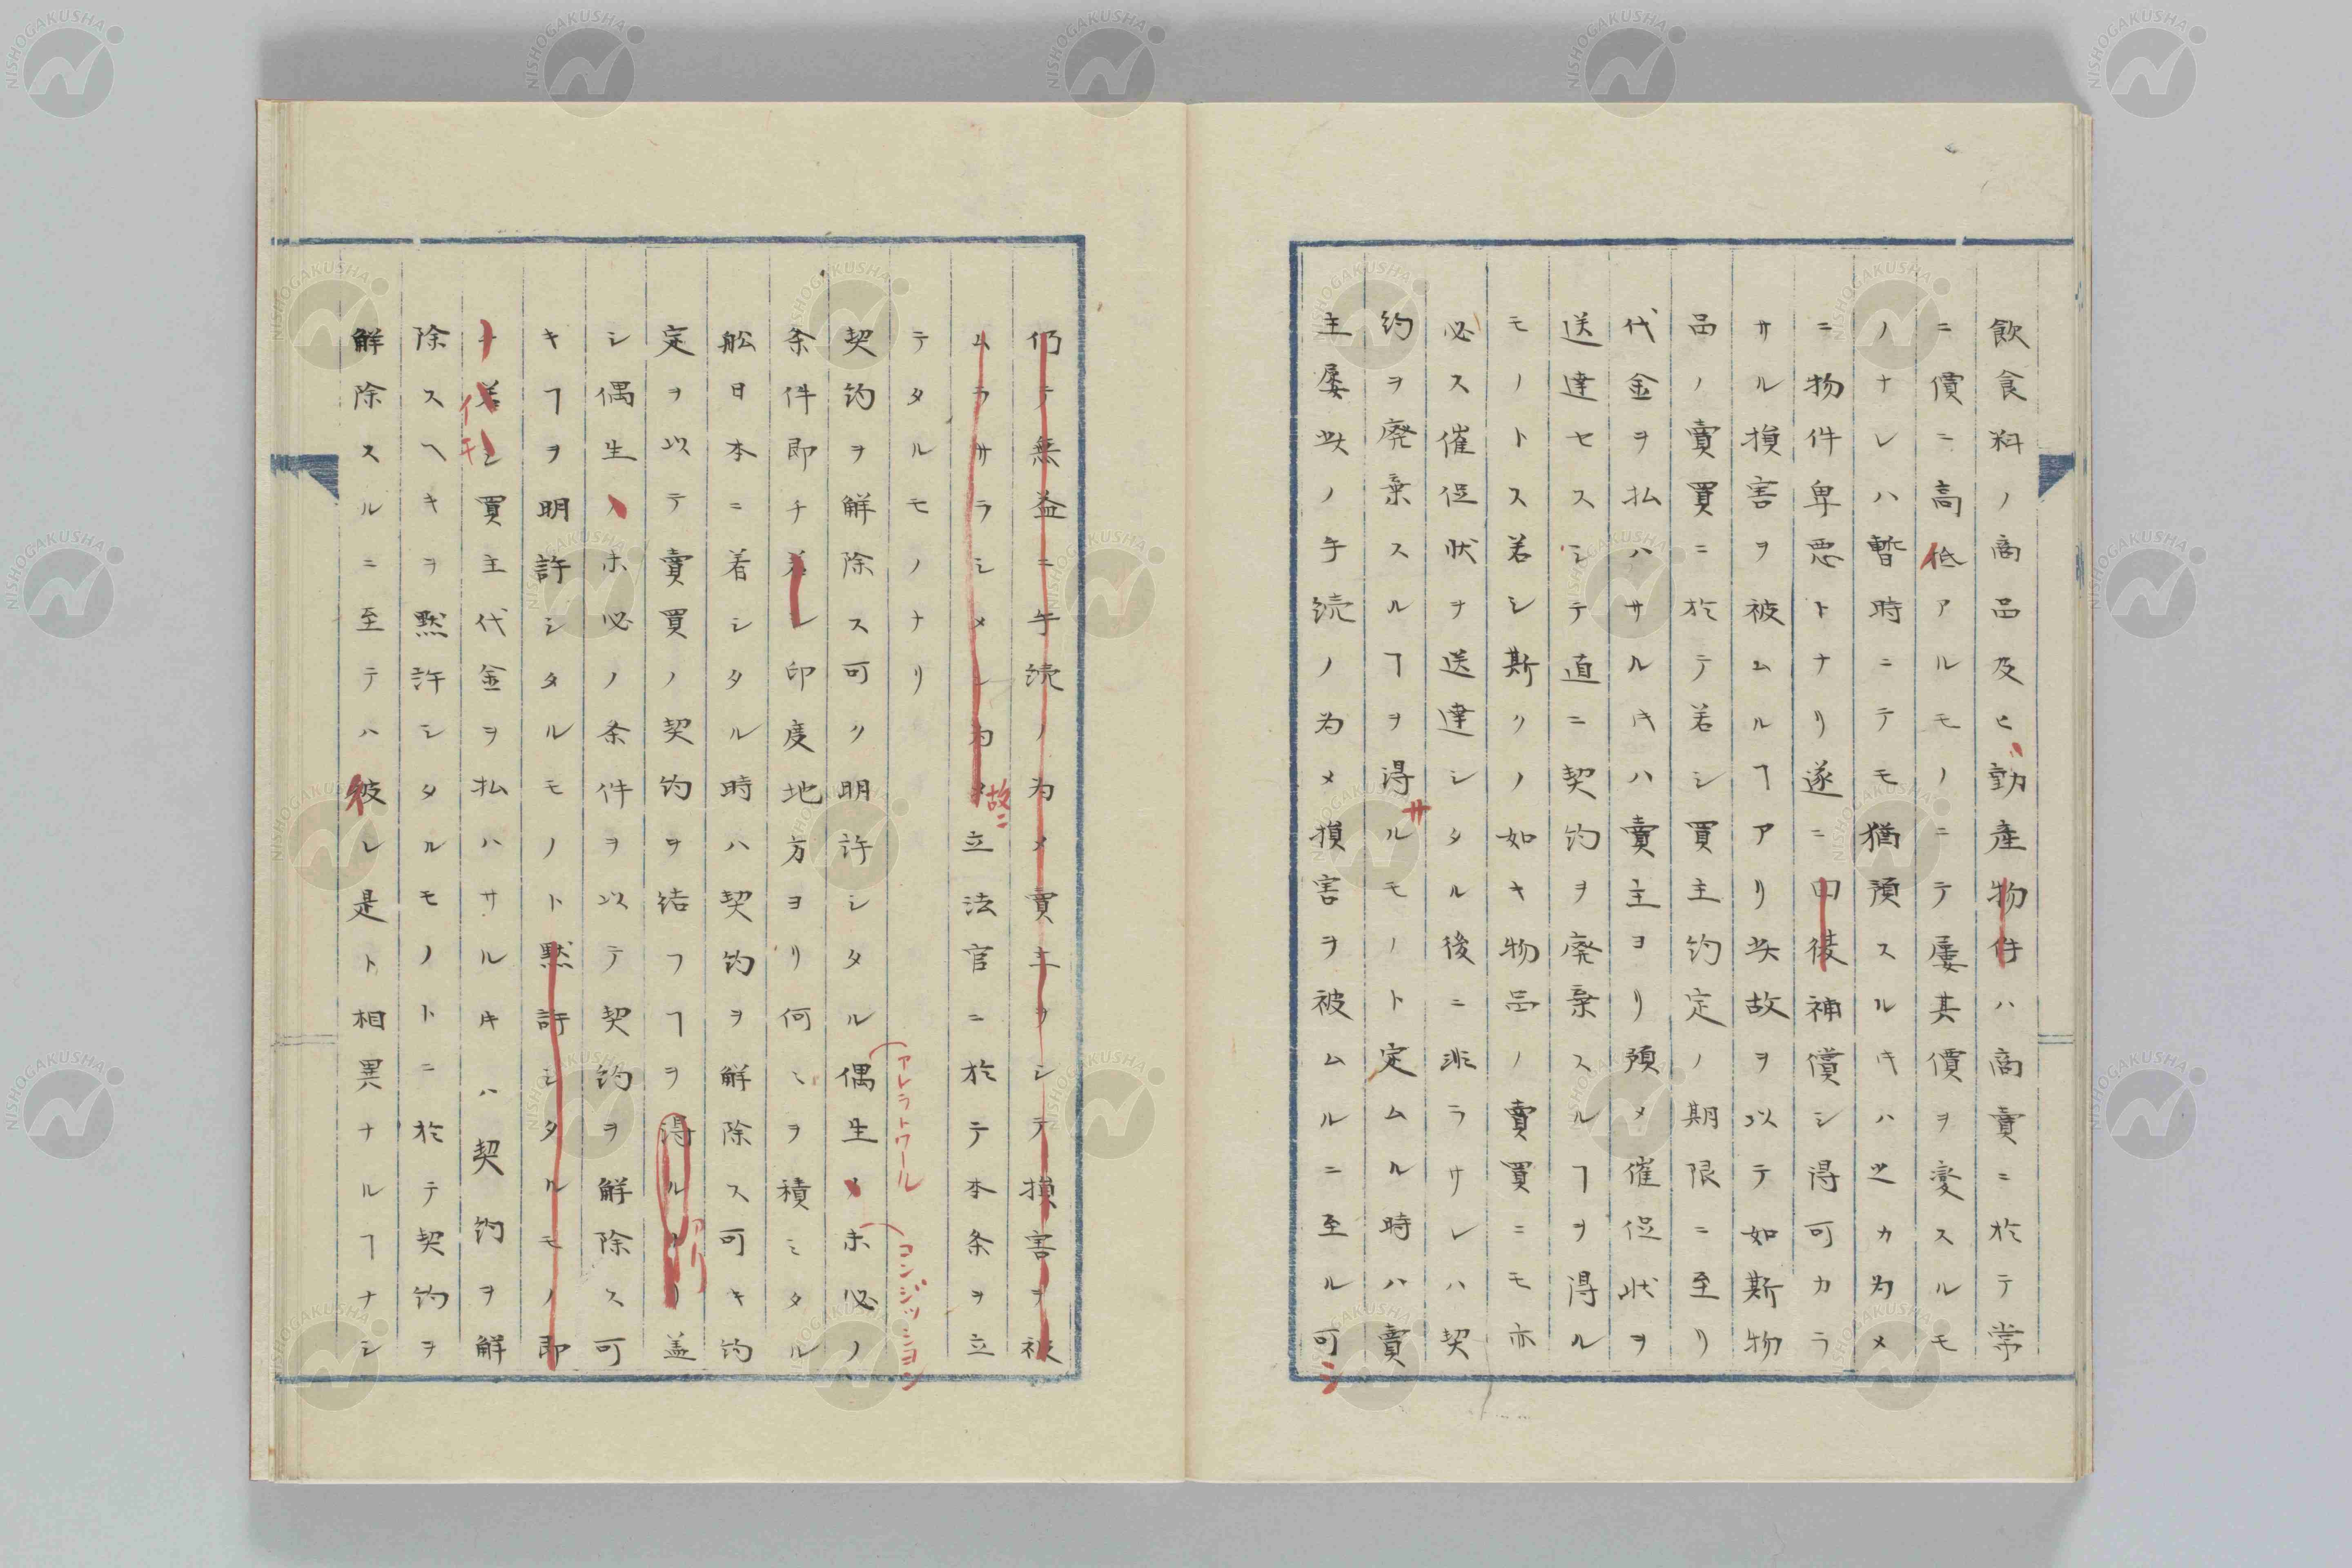 飲食料ノ商品及ヒ動産物件ハ商賣ニ於テ常
ニ價ニ高低アルモノニテ屢其價ヲ変スルモ
ノナレハ暫時ニテモ猶預スルキハ之カ為メ
ニ物件卑悪トナリ遂ニ向後補償シ得可カラ
サル損害ヲ被ムルヿアリ此故ヲ以テ如斯物
品ノ賣買ニ於テ若シ買主約定ノ期限ニ至リ
代金ヲ払ハサルキハ賣主ヨリ預メ催促状ヲ
送達セスシテ直ニ契約ヲ廃棄スルヿヲ得ル
モノトス若シ斯リノ如キ物品ノ賣買ニモ亦
必ス催促状ヲ送達シタル後ニ非ラサレハ契
約ヲ廃棄スルヿヲ得サルモノト定ムル時ハ賣
主屢此ノ手続ノ為メ損害ヲ被ムルニ至ル可シ
仍テ無益ニ手続ノ為メ賣主ヲシテ損害ヲ被
ムラサラシメン為メ故ニ立法官ニ於テ本条ヲ立
テタルモノナリ
アレラトワール
コンジッション
契約ヲ解除ス可リ明許シタル偶生メ未必ノ
条件即チ若シ印度地方ヨリ何〻ヲ積ミタル
舩日本ニ着シタル時ハ契約ヲ解除ス可キ約
定ヲ以テ賣買ノ契約ヲ結フヿヲ得ルアリ蓋
シ偶生ノ未必ノ条件ヲ以テ契約ヲ解除ス可
キヿヲ明許シタルモノト黙許シタルモノ即
買主代金ヲ払ハサルキハ契約ヲ解
除スヘキヲ黙許シタルモノトニ於テ契約ヲ
解除スルニ至テハ彼レ是ト相異ナルヿナシ